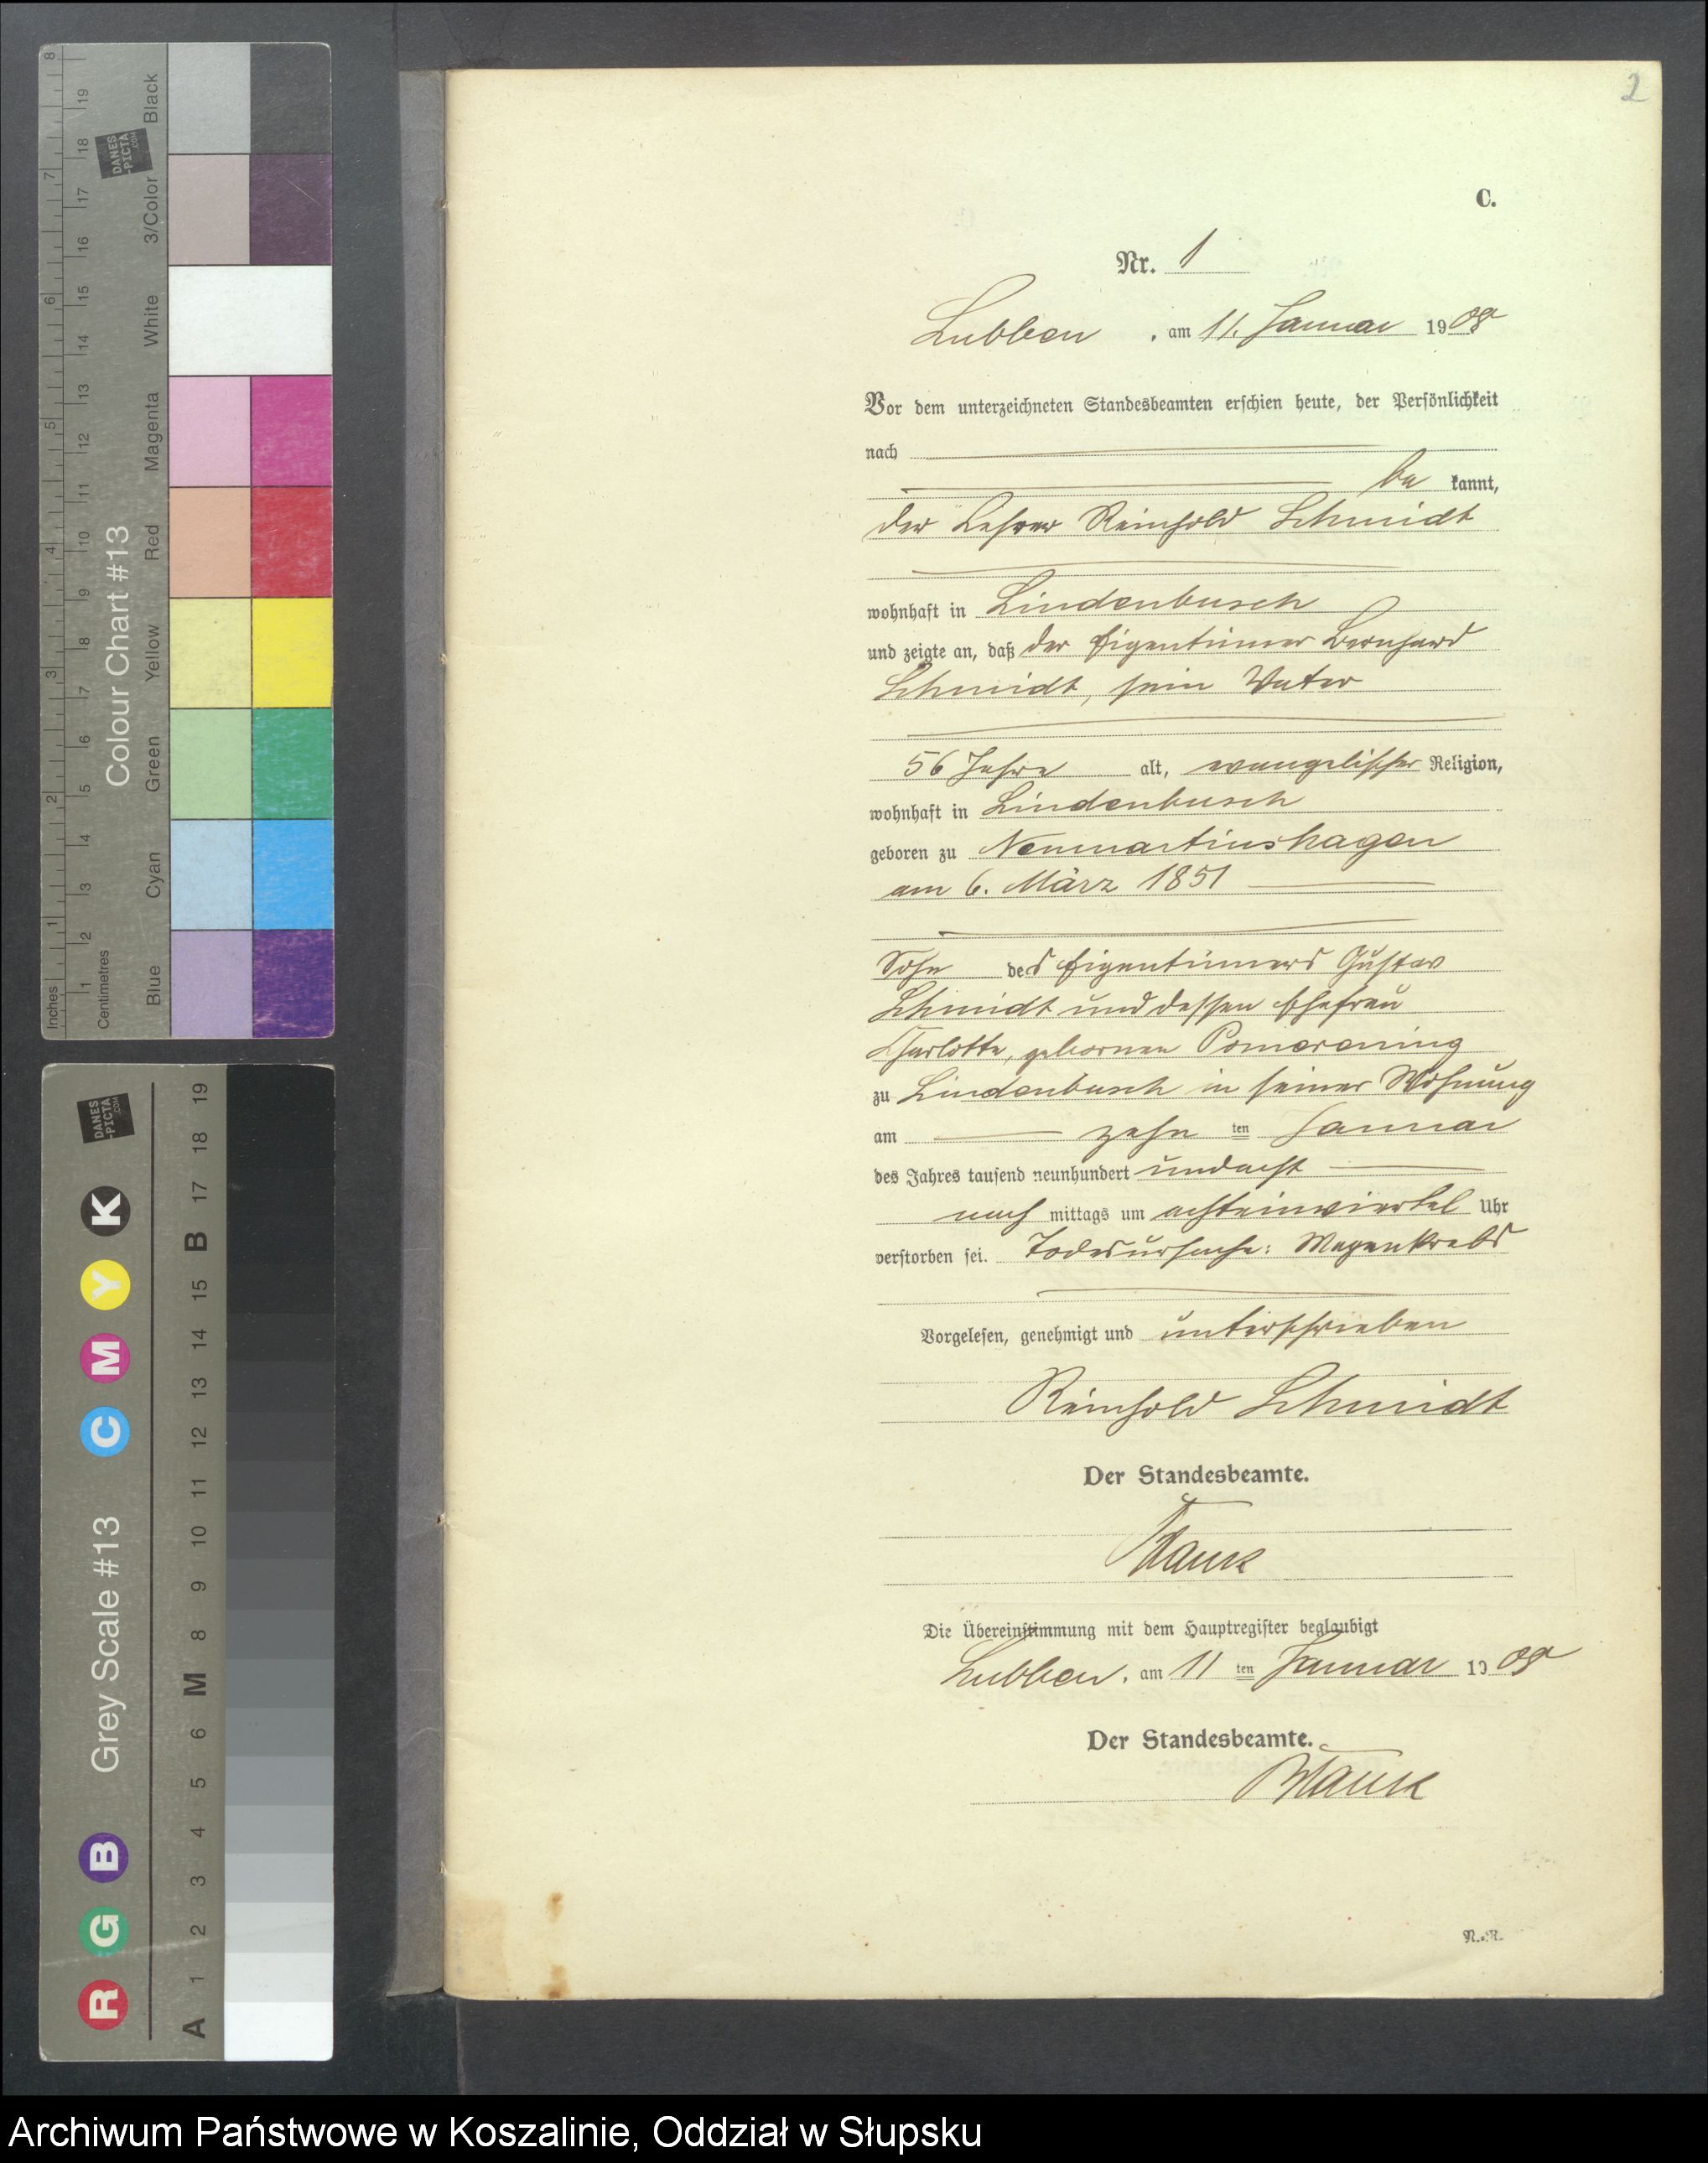 2
C.
Nr. 1
Lubben, am 11. Januar 1908
Vor dem unterzeichneten Standesbeamten erschien heute, der Persönlichkeit
nach
be kannt,
der Lehrer Reinhold Schmidt
wohnhaft in Lindenbusch
und zeigte an, daß der Eigentümer Bernhard
Schmidt, sein Vater
56 Jahre alt, evangelischer Religion,
wohnhaft in Lindenbusch
geboren zu Neumartinshagen
am 6. März 1851
Sohn des Eigentümers Gustav
Schmidt und dessen Ehefrau
Charlotte, gebornen Pomerening
zu Lindenbusch in seiner Wohnung
am zehn ten Januar
des Jahres tausend neunhundert und acht
nach mittags um achteinviertel Uhr
verstorben sei. Todesursache: Magenkrebs
Vorgelesen, genehmigt und unterschrieben
Reinhold Schmidt
Der Standesbeamte.
Die Übereinstimmung mit dem Hauptregister beglaubigt
Lubben, am 11 ten Januar 1908
Der Standesbeamte.
Inches 1 2 3 4 5 6 7 8
Centimetres 1 2 3 4 5 6 7 8 9 10 11 12 13 14 15 16 17 18 19
Colour Chart #13
Blue Cyan Green Yellow Red Magenta White 3/Color Black
DANES
-PICTA
.COM
R G B Grey Scale #13 C M Y K
A 1 2 3 4 5 6 M 8 9 10 11 12 13 14 15 B 17 18 19
DANES
-PICTA
.COM
Archiwum Państwowe w Koszalinie, Oddział w Słupsku